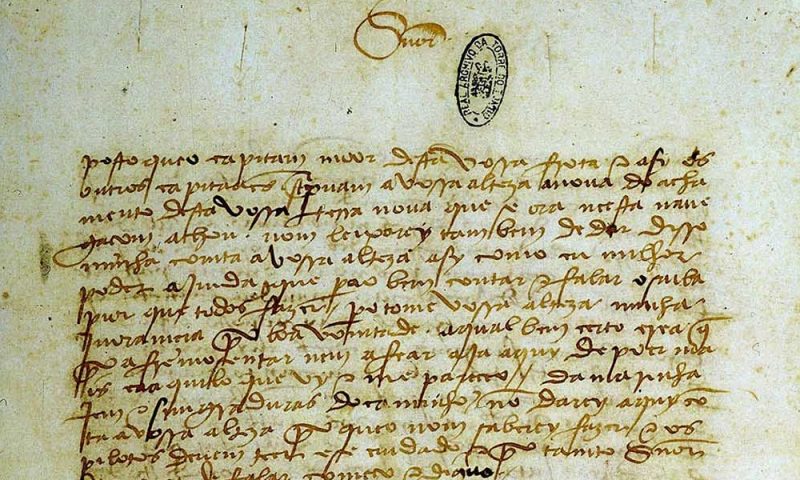 Snõr
REAL ARCHIVO DA TORRE DO TOMBO
posto queo capitam moor desta vossa frota e asy os
outros capitaães screpuam avossa alteza anoua do acha
mento desta vossa terra noua que se ora neesta naue
gaçom achou. nom leixarey tambem de dar disso
minha comta avossa alteza asy como eu milhor
poder aimda que perao bem contar e falar o saiba
pior que todos fazer. / pero tome vossa alteza minha
inoramçia por boa vomtade. aqual bem çerto crea q̃
por afremosentar nem afear aja aquy de poer ma
is caaquilo que vy e me pareçeo. / da marinha
jem e simgraduras do caminho. nõ darey aquy cõ
ta avossa alteza por queo nom saberey fazer e os
pilotos deuem teer ese cuidado e por tanto Snõr
de falar começo e diguo.